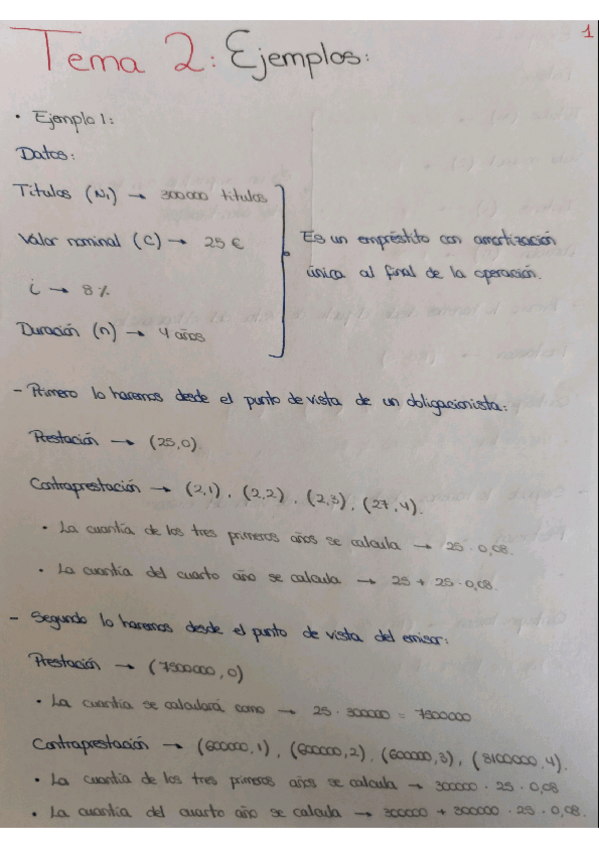 1
Tema 2: Ejemplos:
• Ejemplo 1:
Datos:
Títulos (N₁) → 300000 títulos
Valor nominal (C) → 25 €
Es un empréstito con amortización
única al final de la operación.
i → 8 %
Duración (n) → 4 años
- Primero lo haremos desde el punto de vista de un obligacionista:
Prestación → (25,0).
Contraprestación → (2,1), (2,2), (2,3), (27,4).
• La cuantía de los tres primeros años se calcula → 25 · 0,08.
• La cuantía del cuarto año se calcula → 25 + 25 · 0,08.
- Segundo lo haremos desde el punto de vista del emisor:
Prestación → (7500000, 0)
• La cuantía se calculará como → 25 · 300000 = 7500000
Contraprestación → (600000,1), (600000,2), (600000,3), (8100000,4).
• La cuantía de los tres primeros años se calcula → 300000 · 25 · 0,08
• La cuantía del cuarto año se calcula → 300000 + 300000 · 25 · 0,08.